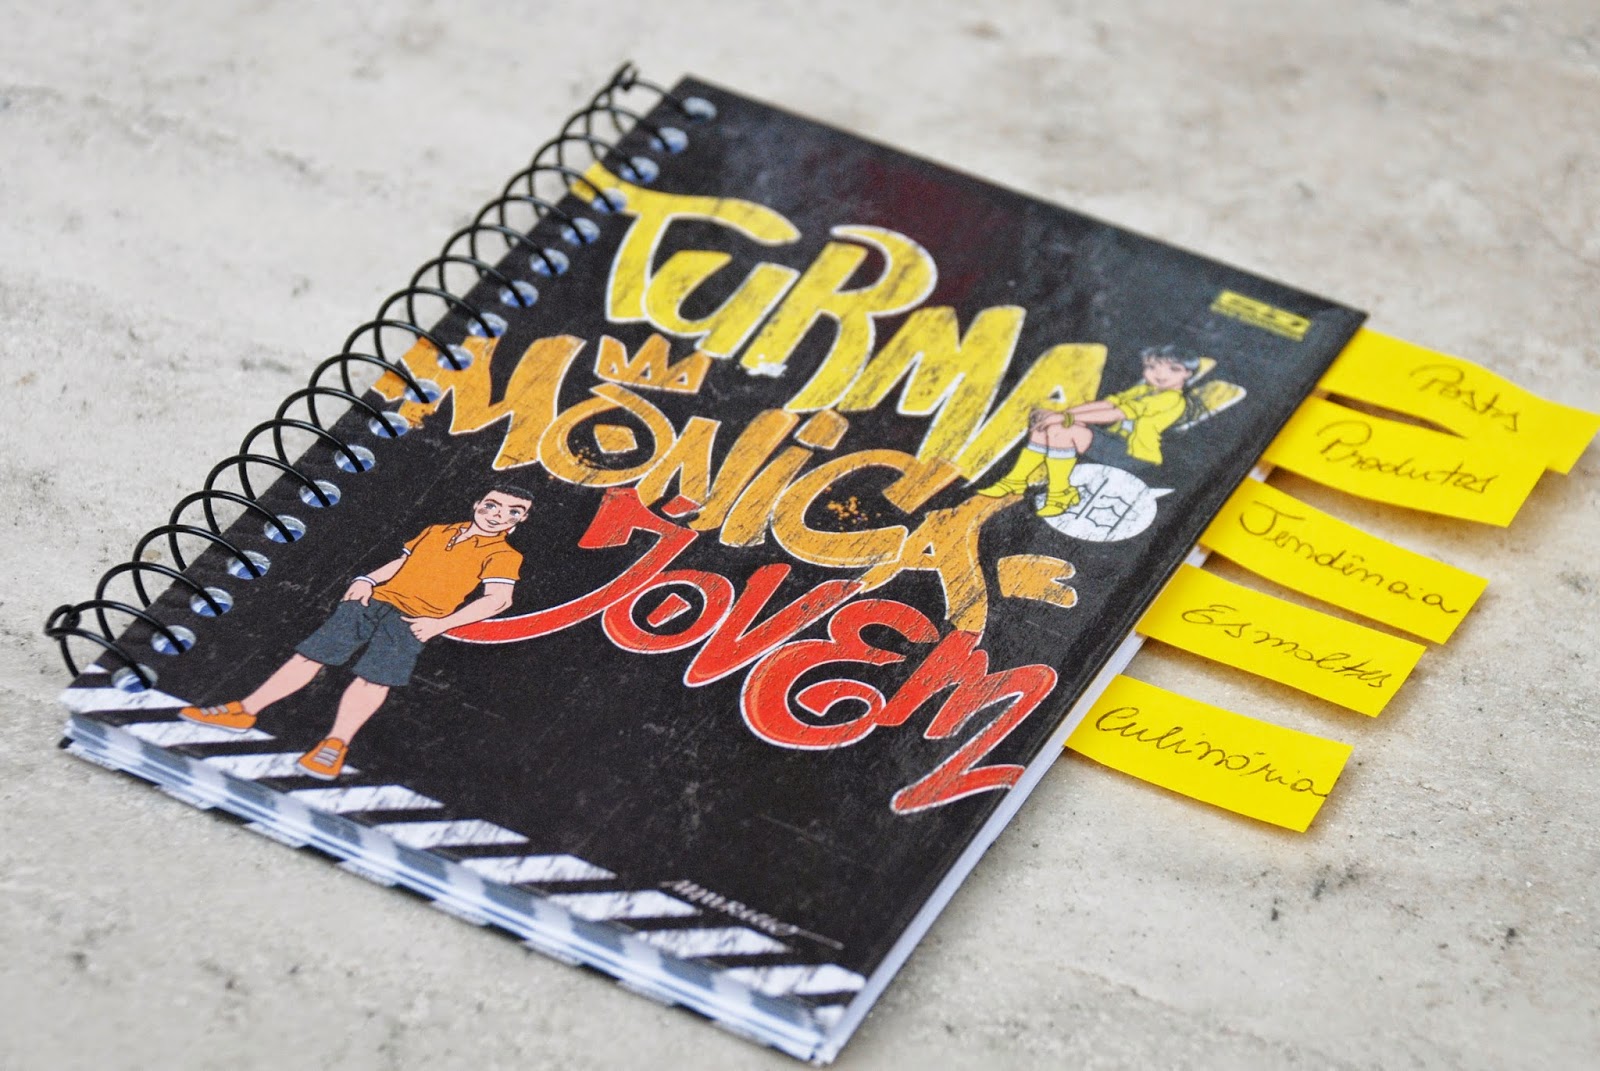 TURMA
DA
MÔNICA
JOVEM
MAURICIO
Posts
Produtos
Tendência
Esmaltes
Culinária